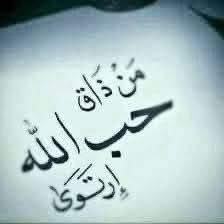 مَنْ ذَاق
حب الله
إرتوَىٰ